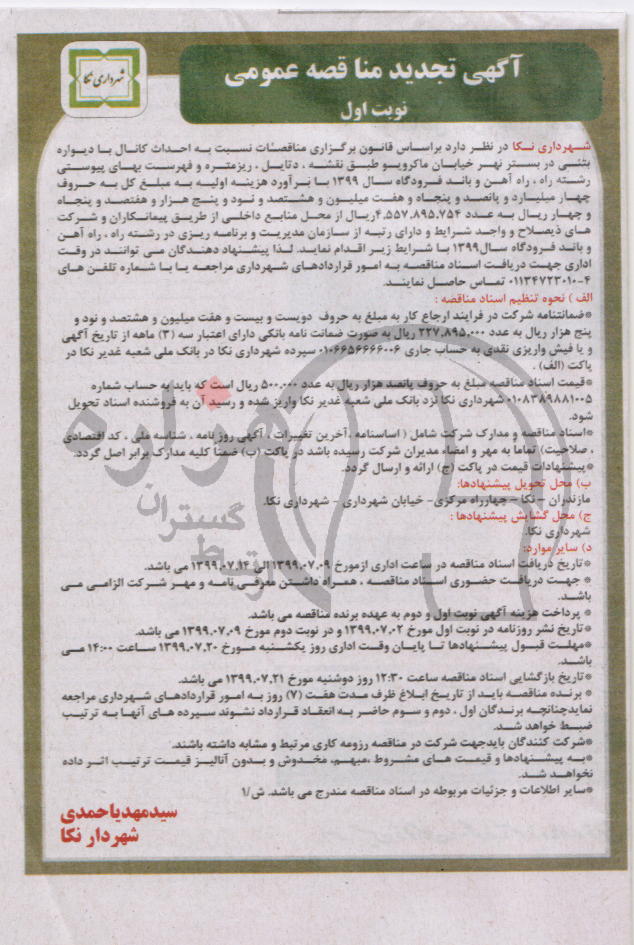 آگهی تجدید مناقصه عمومی
نوبت اول
شهرداری نکا
شهرداری نکا در نظر دارد براساس قانون برگزاری مناقصات نسبت به احداث کانال با دیواره
بتنی در بستر نهر خیابان ماکرویو طبق نقشه ، دتایل ، ریزمتره و فهرست بهای پیوستی
رشته راه ، راه آهن و باند فرودگاه سال ۱۳۹۹ با برآورد هزینه اولیه به مبلغ کل به حروف
چهار میلیارد و پانصد و پنجاه و هفت میلیون و هشتصد و نود و پنج هزار و هفتصد و پنجاه
و چهار ریال به عدد ۴,۵۵۷,۸۹۵,۷۵۴ریال از محل منابع داخلی از طریق پیمانکاران و شرکت
های ذیصلاح و واجد شرایط و دارای رتبه از سازمان مدیریت و برنامه ریزی در رشته راه ، راه آهن
و باند فرودگاه سال۱۳۹۹ با شرایط زیر اقدام نماید. لذا پیشنهاد دهندگان می توانند در وقت
اداری جهت دریافت اسناد مناقصه به امور قراردادهای شهرداری مراجعه یا با شماره تلفن های
۰۱۱۳۴۷۲۳۰۱۰-۴ تماس حاصل نمایند.
الف ) نحوه تنظیم اسناد مناقصه :
*ضمانتنامه شرکت در فرایند ارجاع کار به مبلغ به حروف دویست و بیست و هفت میلیون و هشتصد و نود و
پنج هزار ریال به عدد ۲۲۷,۸۹۵,۰۰۰ ریال به صورت ضمانت نامه بانکی دارای اعتبار سه (۳) ماهه از تاریخ آگهی
و یا فیش واریزی نقدی به حساب جاری ۰۱۰۶۶۵۶۶۶۶۰۰۶ سپرده شهرداری نکا در بانک ملی شعبه غدیر نکا در
پاکت (الف) .
*قیمت اسناد مناقصه مبلغ به حروف پانصد هزار ریال به عدد ۵۰۰,۰۰۰ ریال است که باید به حساب شماره
۰۱۰۸۳۸۹۸۸۱۰۰۵ شهرداری نکا نزد بانک ملی شعبه غدیر نکا واریز شده و رسید آن به فروشنده اسناد تحویل
شود.
*اسناد مناقصه و مدارک شرکت شامل ( اساسنامه ،آخرین تغییرات ، آگهی روزنامه ، شناسه ملی ، کد اقتصادی
، صلاحیت) تماما به مهر و امضاء مدیران شرکت رسیده باشد در پاکت (ب) ضمنا کلیه مدارک برابر اصل گردد.
*پیشنهادات قیمت در پاکت (ج) ارائه و ارسال گردد.
ب) محل تحویل پیشنهادها:
مازندران – نکا – چهارراه مرکزی- خیابان شهرداری - شهرداری نکا.
ج) محل گشایش پیشنهادها :
شهرداری نکا.
د) سایر موارد:
*تاریخ دریافت اسناد مناقصه در ساعت اداری ازمورخ ۱۳۹۹,۰۷,۰۹ الی ۱۳۹۹,۰۷,۱۴ می باشد.
* جهت دریافت حضوری اسناد مناقصه ، همراه داشتن معرفی نامه و مهر شرکت الزامی می
باشد.
* پرداخت هزینه آگهی نوبت اول و دوم به عهده برنده مناقصه می باشد.
*تاریخ نشر روزنامه در نوبت اول مورخ ۱۳۹۹,۰۷,۰۲ و در نوبت دوم مورخ ۱۳۹۹,۰۷,۰۹ می باشد.
*مهلت قبول پیشنهادها تا پایان وقت اداری روز یکشنبه مورخ ۱۳۹۹,۰۷,۲۰ ساعت ۱۴:۰۰ می
باشد.
*تاریخ بازگشایی اسناد مناقصه ساعت ۱۲:۳۰ روز دوشنبه مورخ ۱۳۹۹,۰۷,۲۱ می باشد.
* برنده مناقصه باید از تاریخ ابلاغ ظرف مدت هفت (۷) روز به امور قراردادهای شهرداری مراجعه
نمایدچنانچه برندگان اول ، دوم و سوم حاضر به انعقاد قرارداد نشوند سپرده های آنها به ترتیب
ضبط خواهد شد.
*شرکت کنندگان بایدجهت شرکت در مناقصه رزومه کاری مرتبط و مشابه داشته باشند.
*به پیشنهادها و قیمت های مشروط ،مبهم، مخدوش و بدون آنالیز قیمت ترتیب اثر داده
نخواهد شد.
*سایر اطلاعات و جزئیات مربوطه در اسناد مناقصه مندرج می باشد. ش/۱
سیدمهدیاحمدی
شهردار نکا
هزاره
گستران